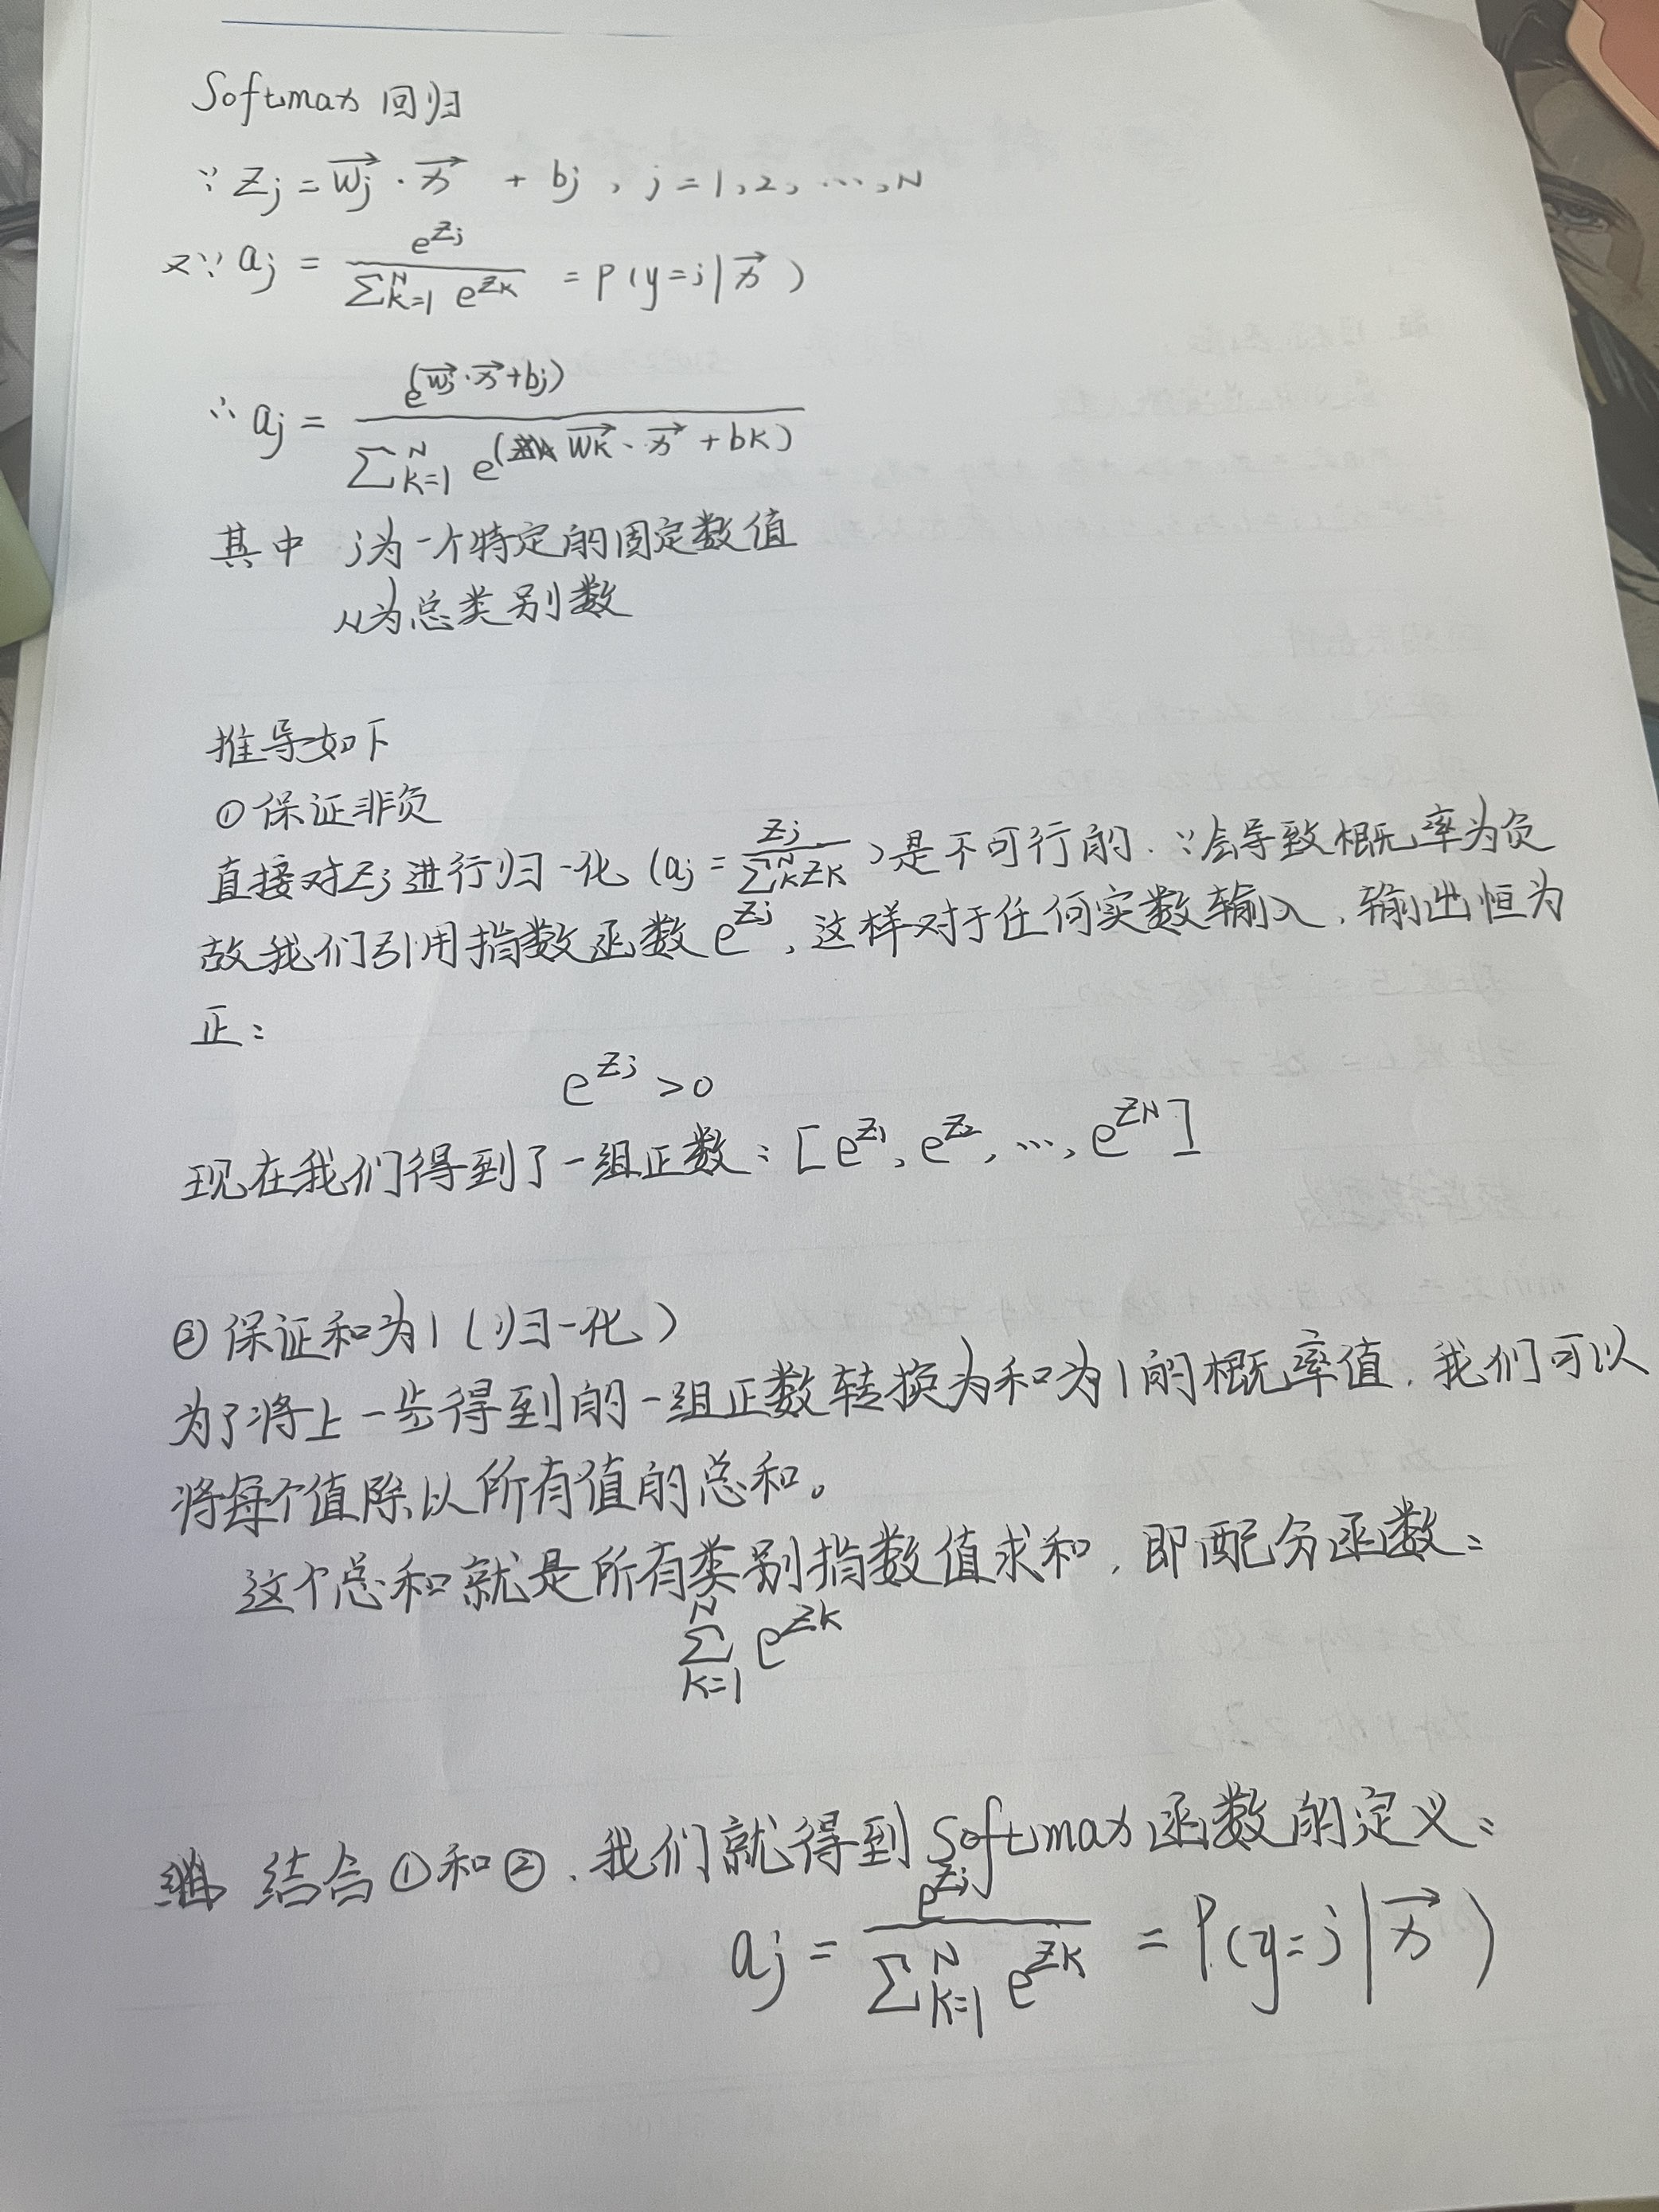 Softmax 回归
∵ Zj = →wj · →x + bj , j = 1, 2, ..., N
又∵ aj = e^Zj / ∑_{k=1}^N e^Zk = P(y=j|→x)
∴ aj = e^(→wj·→x+bj) / ∑_{k=1}^N e^(→wk·→x+bk)
其中 j为一个特定的固定数值
N为总类别数
推导如下
①保证非负
直接对Zj进行归一化(aj = Zj / ∑_k^N Zk)是不可行的.∵会导致概率为负
故我们引用指数函数e^Zj,这样对于任何实数输入,输出恒为
正:
e^Zj > 0
现在我们得到了一组正数:[e^Z1, e^Z2, ..., e^ZN]
②保证和为1(归一化)
为了将上一步得到的一组正数转换为和为1的概率值,我们可以
将每个值除以所有值的总和。
这个总和就是所有类别指数值求和,即配分函数:
∑_{k=1}^N e^Zk
结合①和②,我们就得到Softmax函数的定义:
aj = e^Zj / ∑_{k=1}^N e^Zk = P(y=j|→x)